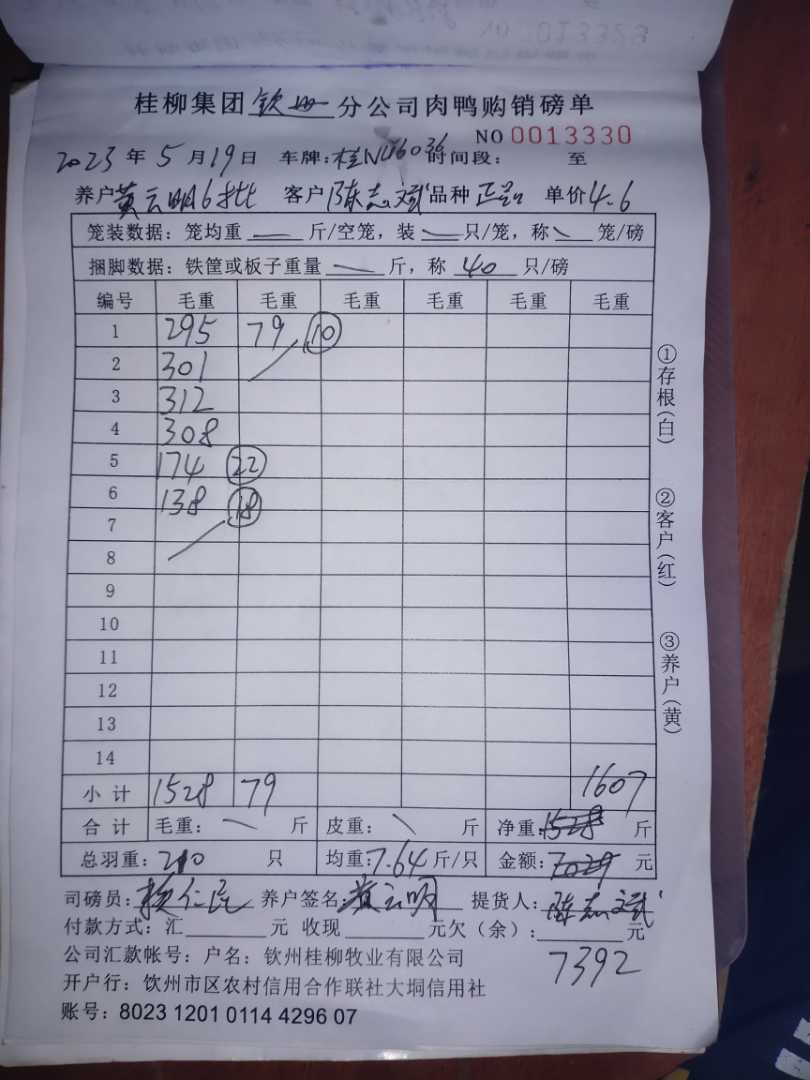 NO 013323
桂柳集团钦州分公司肉鸭购销磅单
NO 0013330
2023年5月19日 车牌:桂NU6036时间段: 至
养户黄云明6批 客户陈志斌 品种 单价4.6
笼装数据:笼均重 斤/空笼,装 只/笼,称 笼/磅
捆脚数据:铁筐或板子重量 斤,称 40 只/磅
编号 毛重 毛重 毛重 毛重 毛重 毛重
1 295 79 10
2 301
3 312
4 308
5 174 22
6 138 18
7
8
9
10
11
12
13
14
小计 1528 79 1607
合计 毛重: 斤 皮重: 斤 净重:1528 斤
总羽重:210 只 均重:7.64斤/只 金额:7029 元
司磅员:杨仁民 养户签名:黄云明 提货人:陈志斌
付款方式:汇 元 收现 元欠(余): 元
7392
公司汇款帐号:户名:钦州桂柳牧业有限公司
开户行:钦州市区农村信用合作联社大垌信用社
账号:8023 1201 0114 4296 07
①存根(白)
②客户(红)
③养户(黄)